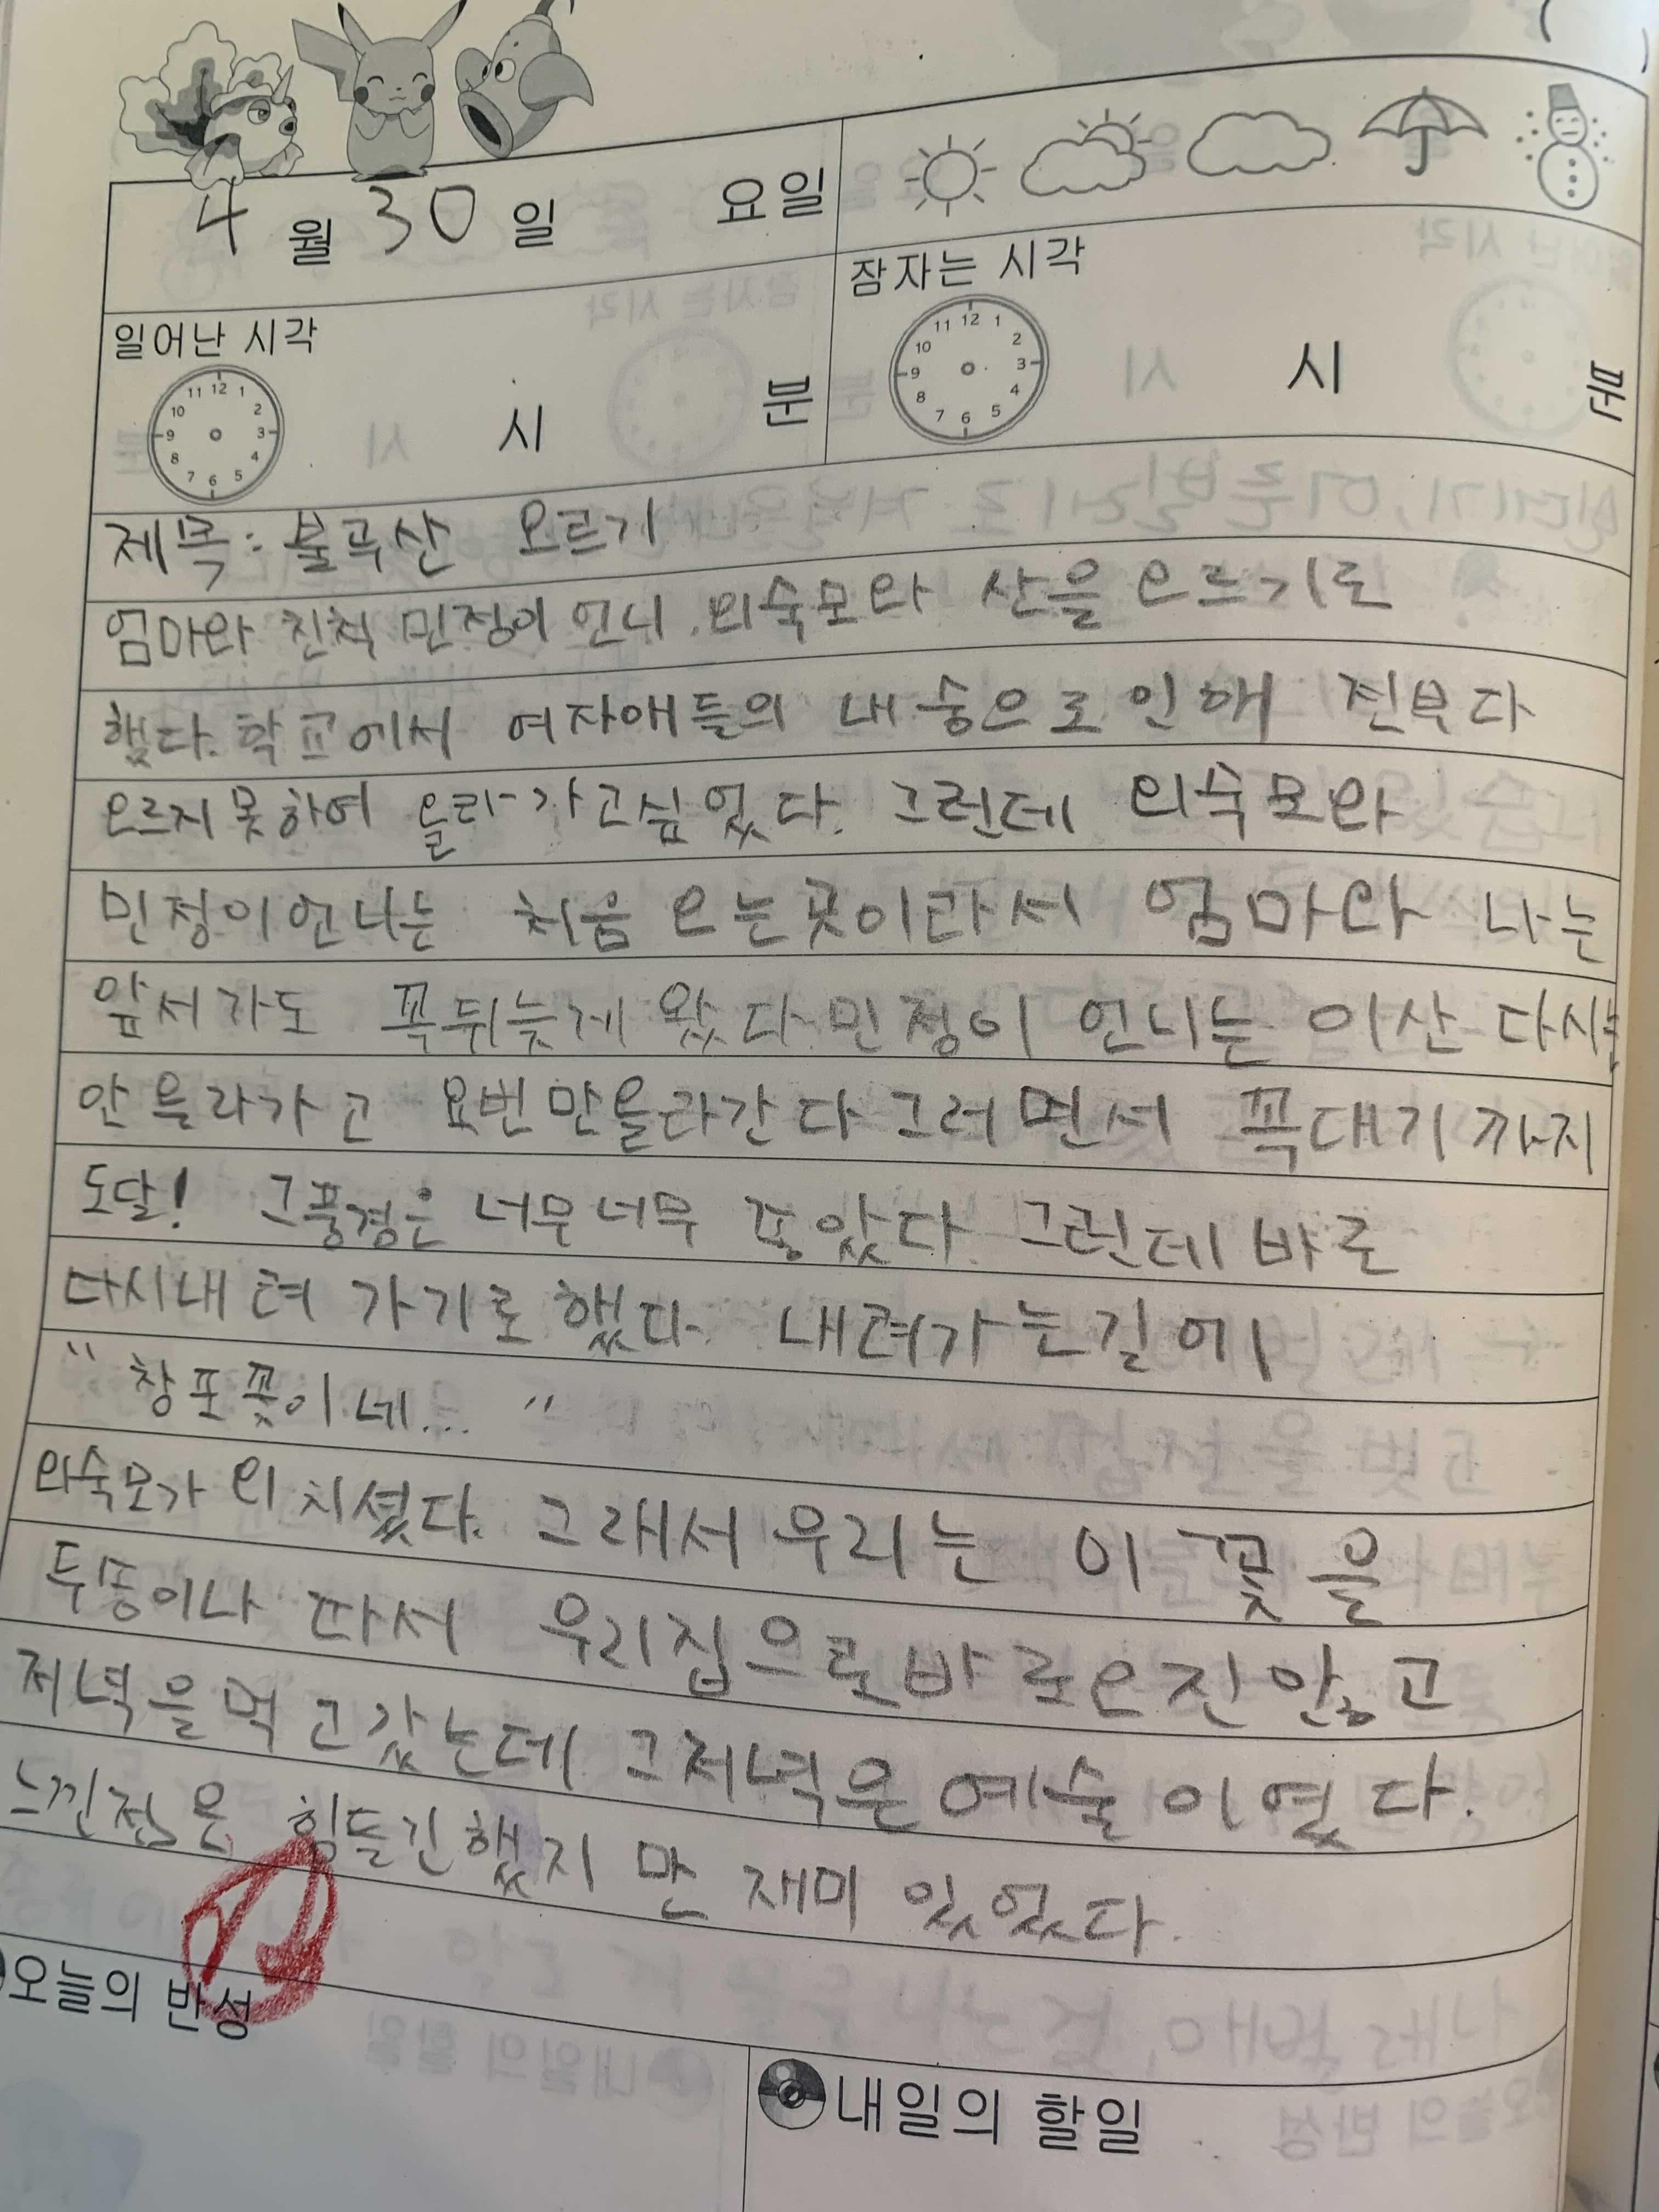 4월 30일 요일
일어난 시각
시 분
잠자는 시각
시 분
11 12 1
10 2
9 3
8 4
7 6 5
11 12 1
10 2
9 3
8 4
7 6 5
제목: 불곡산 오르기
엄마와 친척 민정이 언니, 외숙모와 산을 오르기로
했다. 학교에서 여자애들의 내숭으로 인해 전부다
오르지 못하여 올라가고싶었다. 그런데 외숙모와
민정이언니는 처음 오는곳이라서 엄마와 나는
앞서가도 꼭뒤늦게 왔다. 민정이 언니는 이산 다시는
안 올라가고 요번만올라간다 그러면서 꼭대기까지
도달! 그풍경은 너무너무 좋았다. 그런데 바로
다시내려 가기로 했다. 내려가는길에
“창포꽃이네... ”
외숙모가 외치셨다. 그래서 우리는 이 꽃을
두똥이나 따서 우리집으로바로오진 않고
저녁을 먹고갔는데 그저녁은 예술이였다.
느낀점은 힘들긴했지만 재미 있었다.
오늘의 반성
내일의 할일